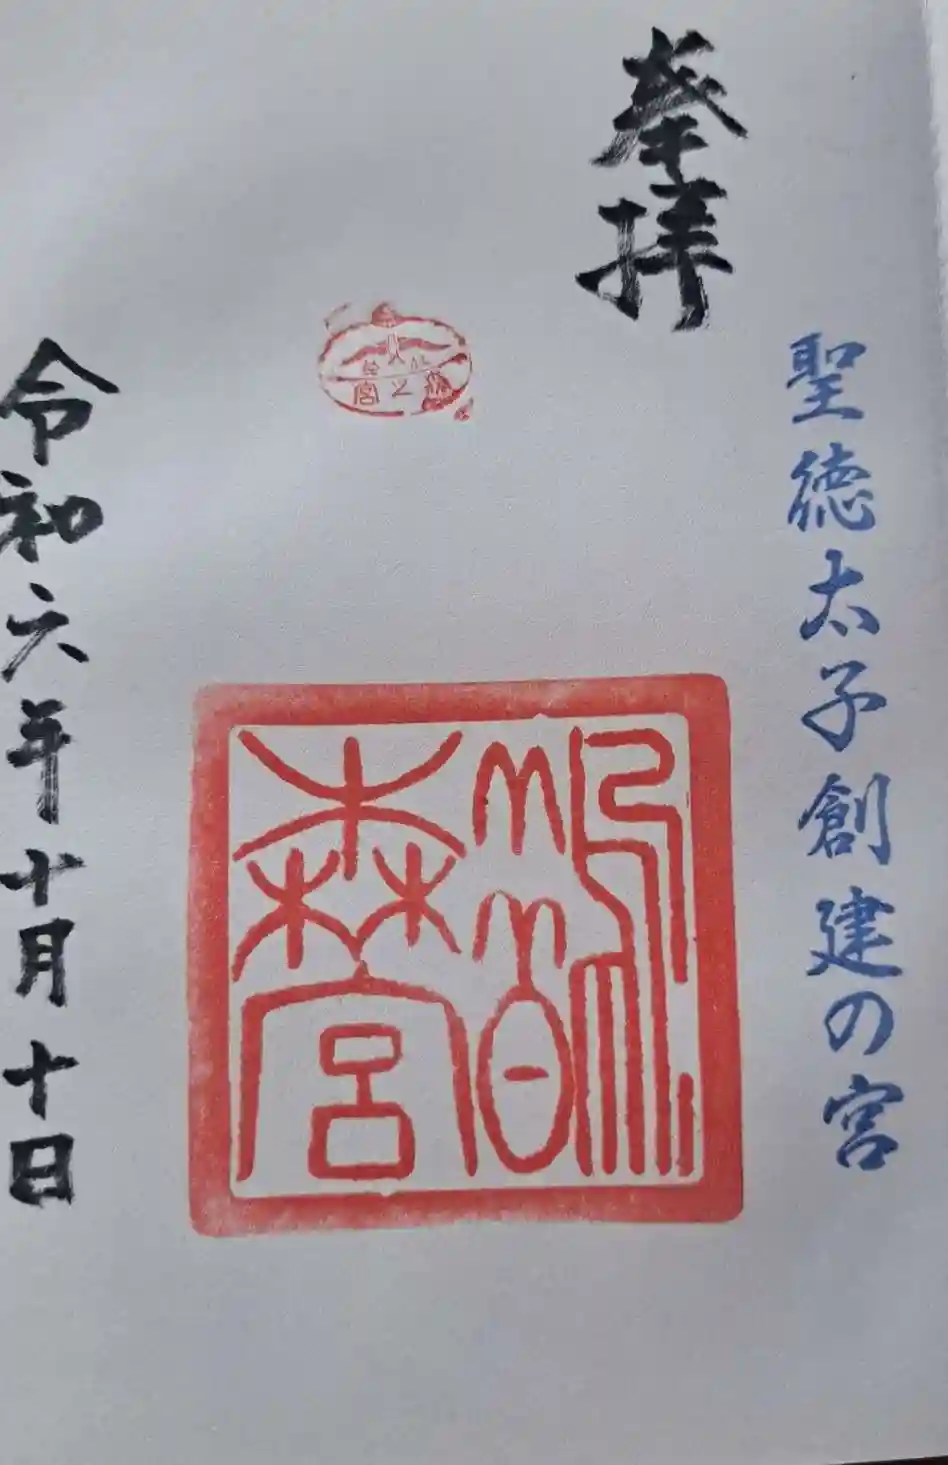 奉拝
聖徳太子創建の宮
鵲森宮
森之宮
令和六年十月十日